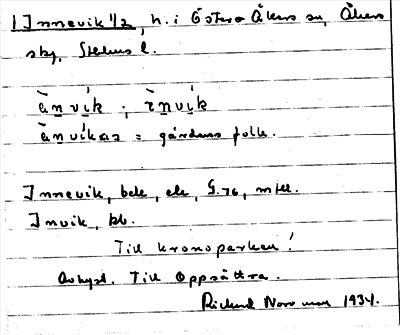 1 Innevik 1/2, h. i Österåkers sn, Åkers
skg, Sthlms l.
ànvík ; ìnvík
ànvíkaz = gårdens folk.
Innevik, bebe, ek, G. 76, mtll.
Invik, kb.
Till kronoparken!
Avhyst. Till Oppsättra.
Rickard Norrman 1934.